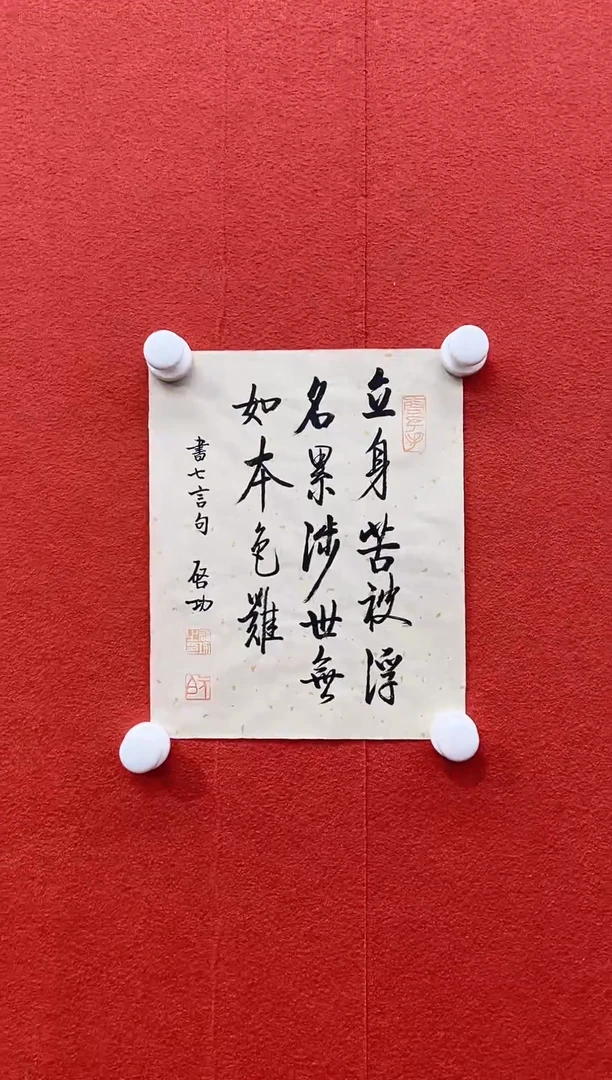 立身苦被浮
名累涉世無
如本色難
書七言句 啓功